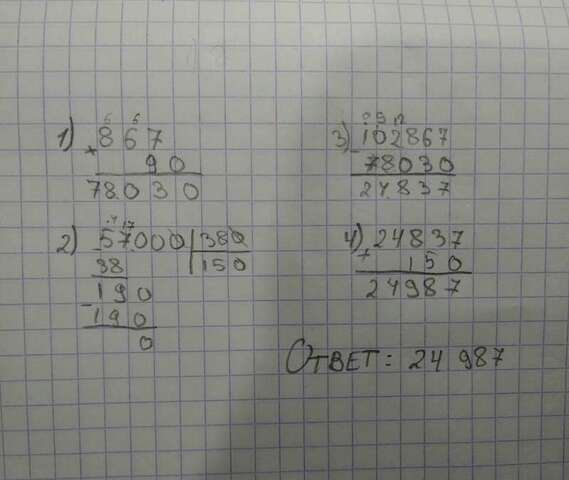 1) 867
× 90
78030
2) 57000 | 380
38 | 150
190
- 190
0
3) 102867
- 78030
24837
4) 24837
+ 150
24987
Ответ: 24 987